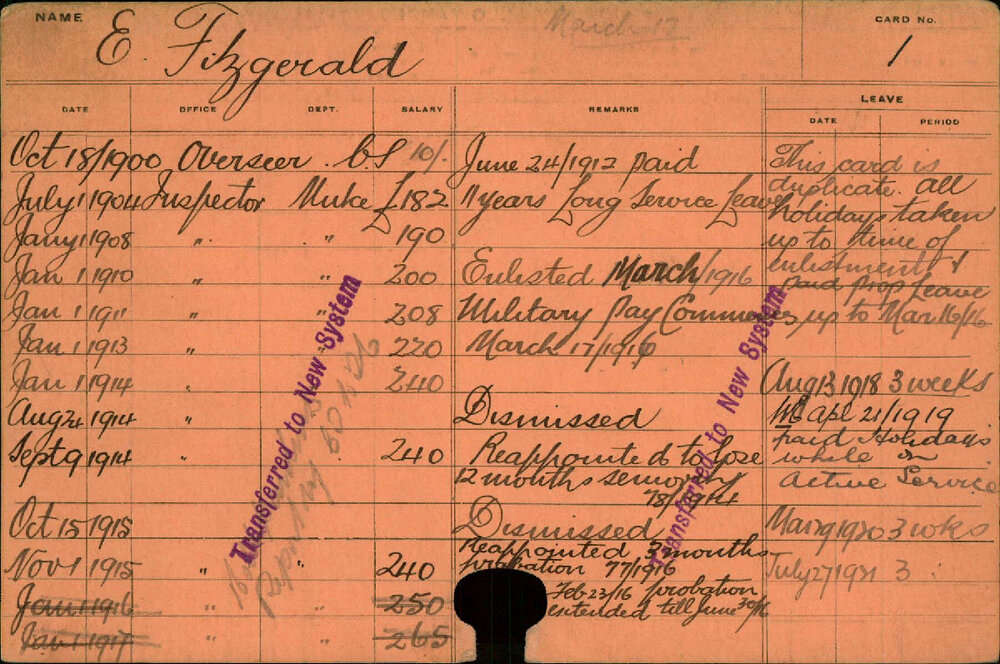 NAME E Fitzgerald March 13 CARD No. 1
DATE OFFICE DEPT. SALARY REMARKS LEAVE
DATE PERIOD
Oct 18/1900 Overseer C.S 10/- June 24/1912 paid This card is
duplicate. all
July 1 1904 Inspector Muke £182 11 years Long Service Leave holidays taken
Jany 1 1908 " " 190 up to time of
Jan 1 1910 " " 200 Enlisted March/1916 enlistment &
paid prop Leave
Jan 1 1911 " " 208 Military Pay Commences up to Mar 16/16
Jan 1 1913 " 220 March 17/1916
Jan 1 1914 " 240 Aug 13 1918 3 weeks
Aug 24 1914 " Dismissed WE Apl 21/1919
paid Holidays
Sept 9 1914 " 240 Reappointed to lose while on
12 months seniority Active Service
Oct 15 1915 Dismissed 3 wks
Reappointed 3 months
Nov 1 1915 " " 240 probation 3
Feb 23/16 probation
Jan 1 1916 " " 250 extended till June 30/16
Jan 1 1917 " " 265
Transferred to New System
Transferred to New System